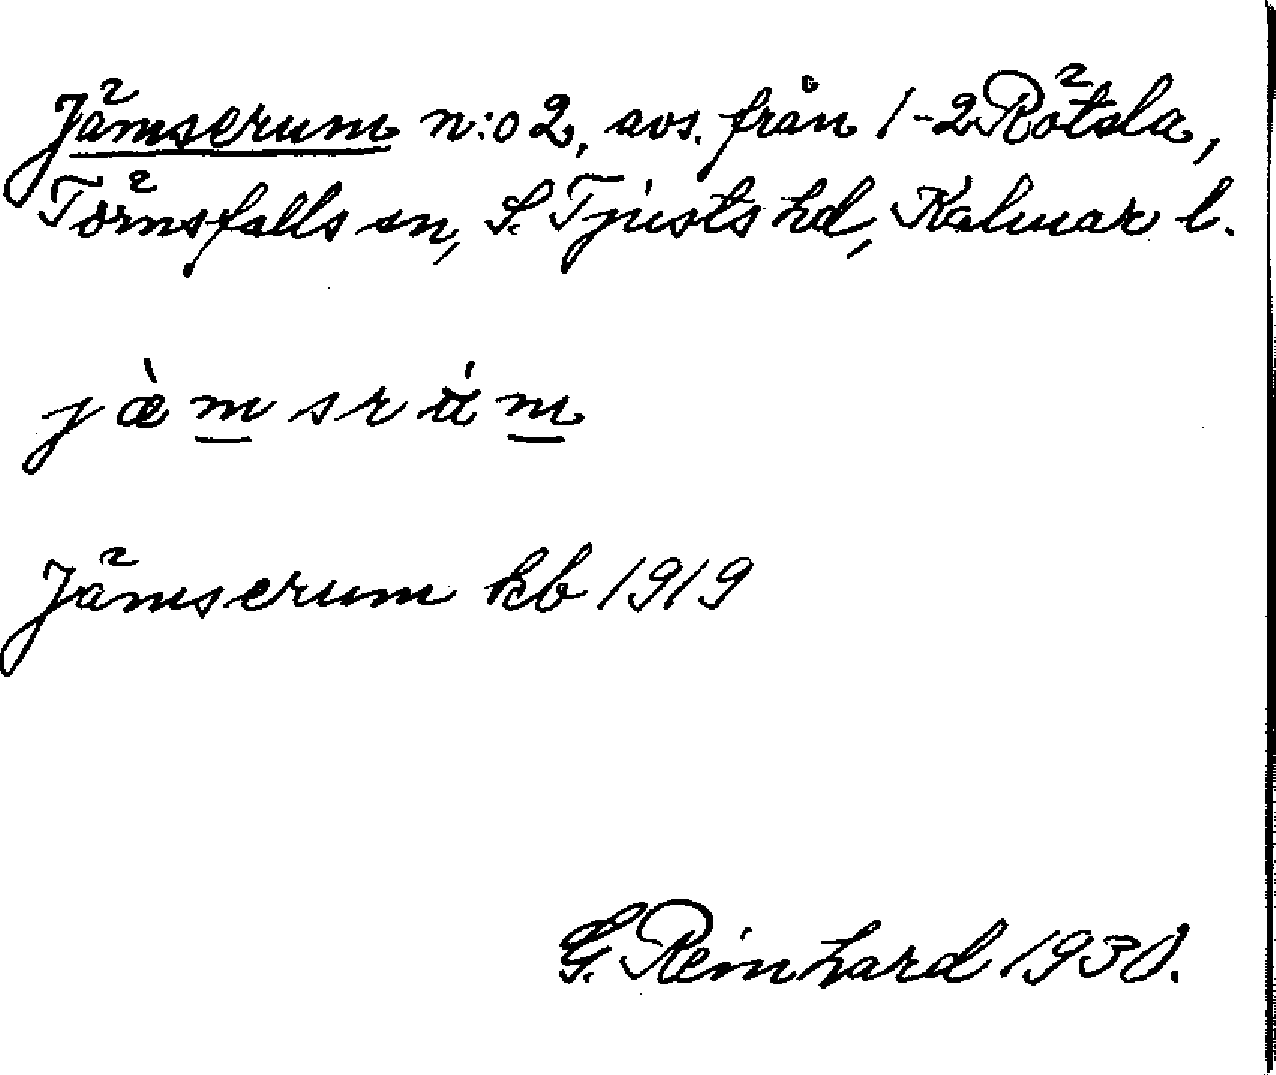 Jämserum n:o 2, avs. från 1-2 Rötsla,
Törnsfalls sn, S. Tjusts hd, Kalmar l.
j æ̀ m s r ú m
Jämserum kb 1919
G. Reinhard 1930.